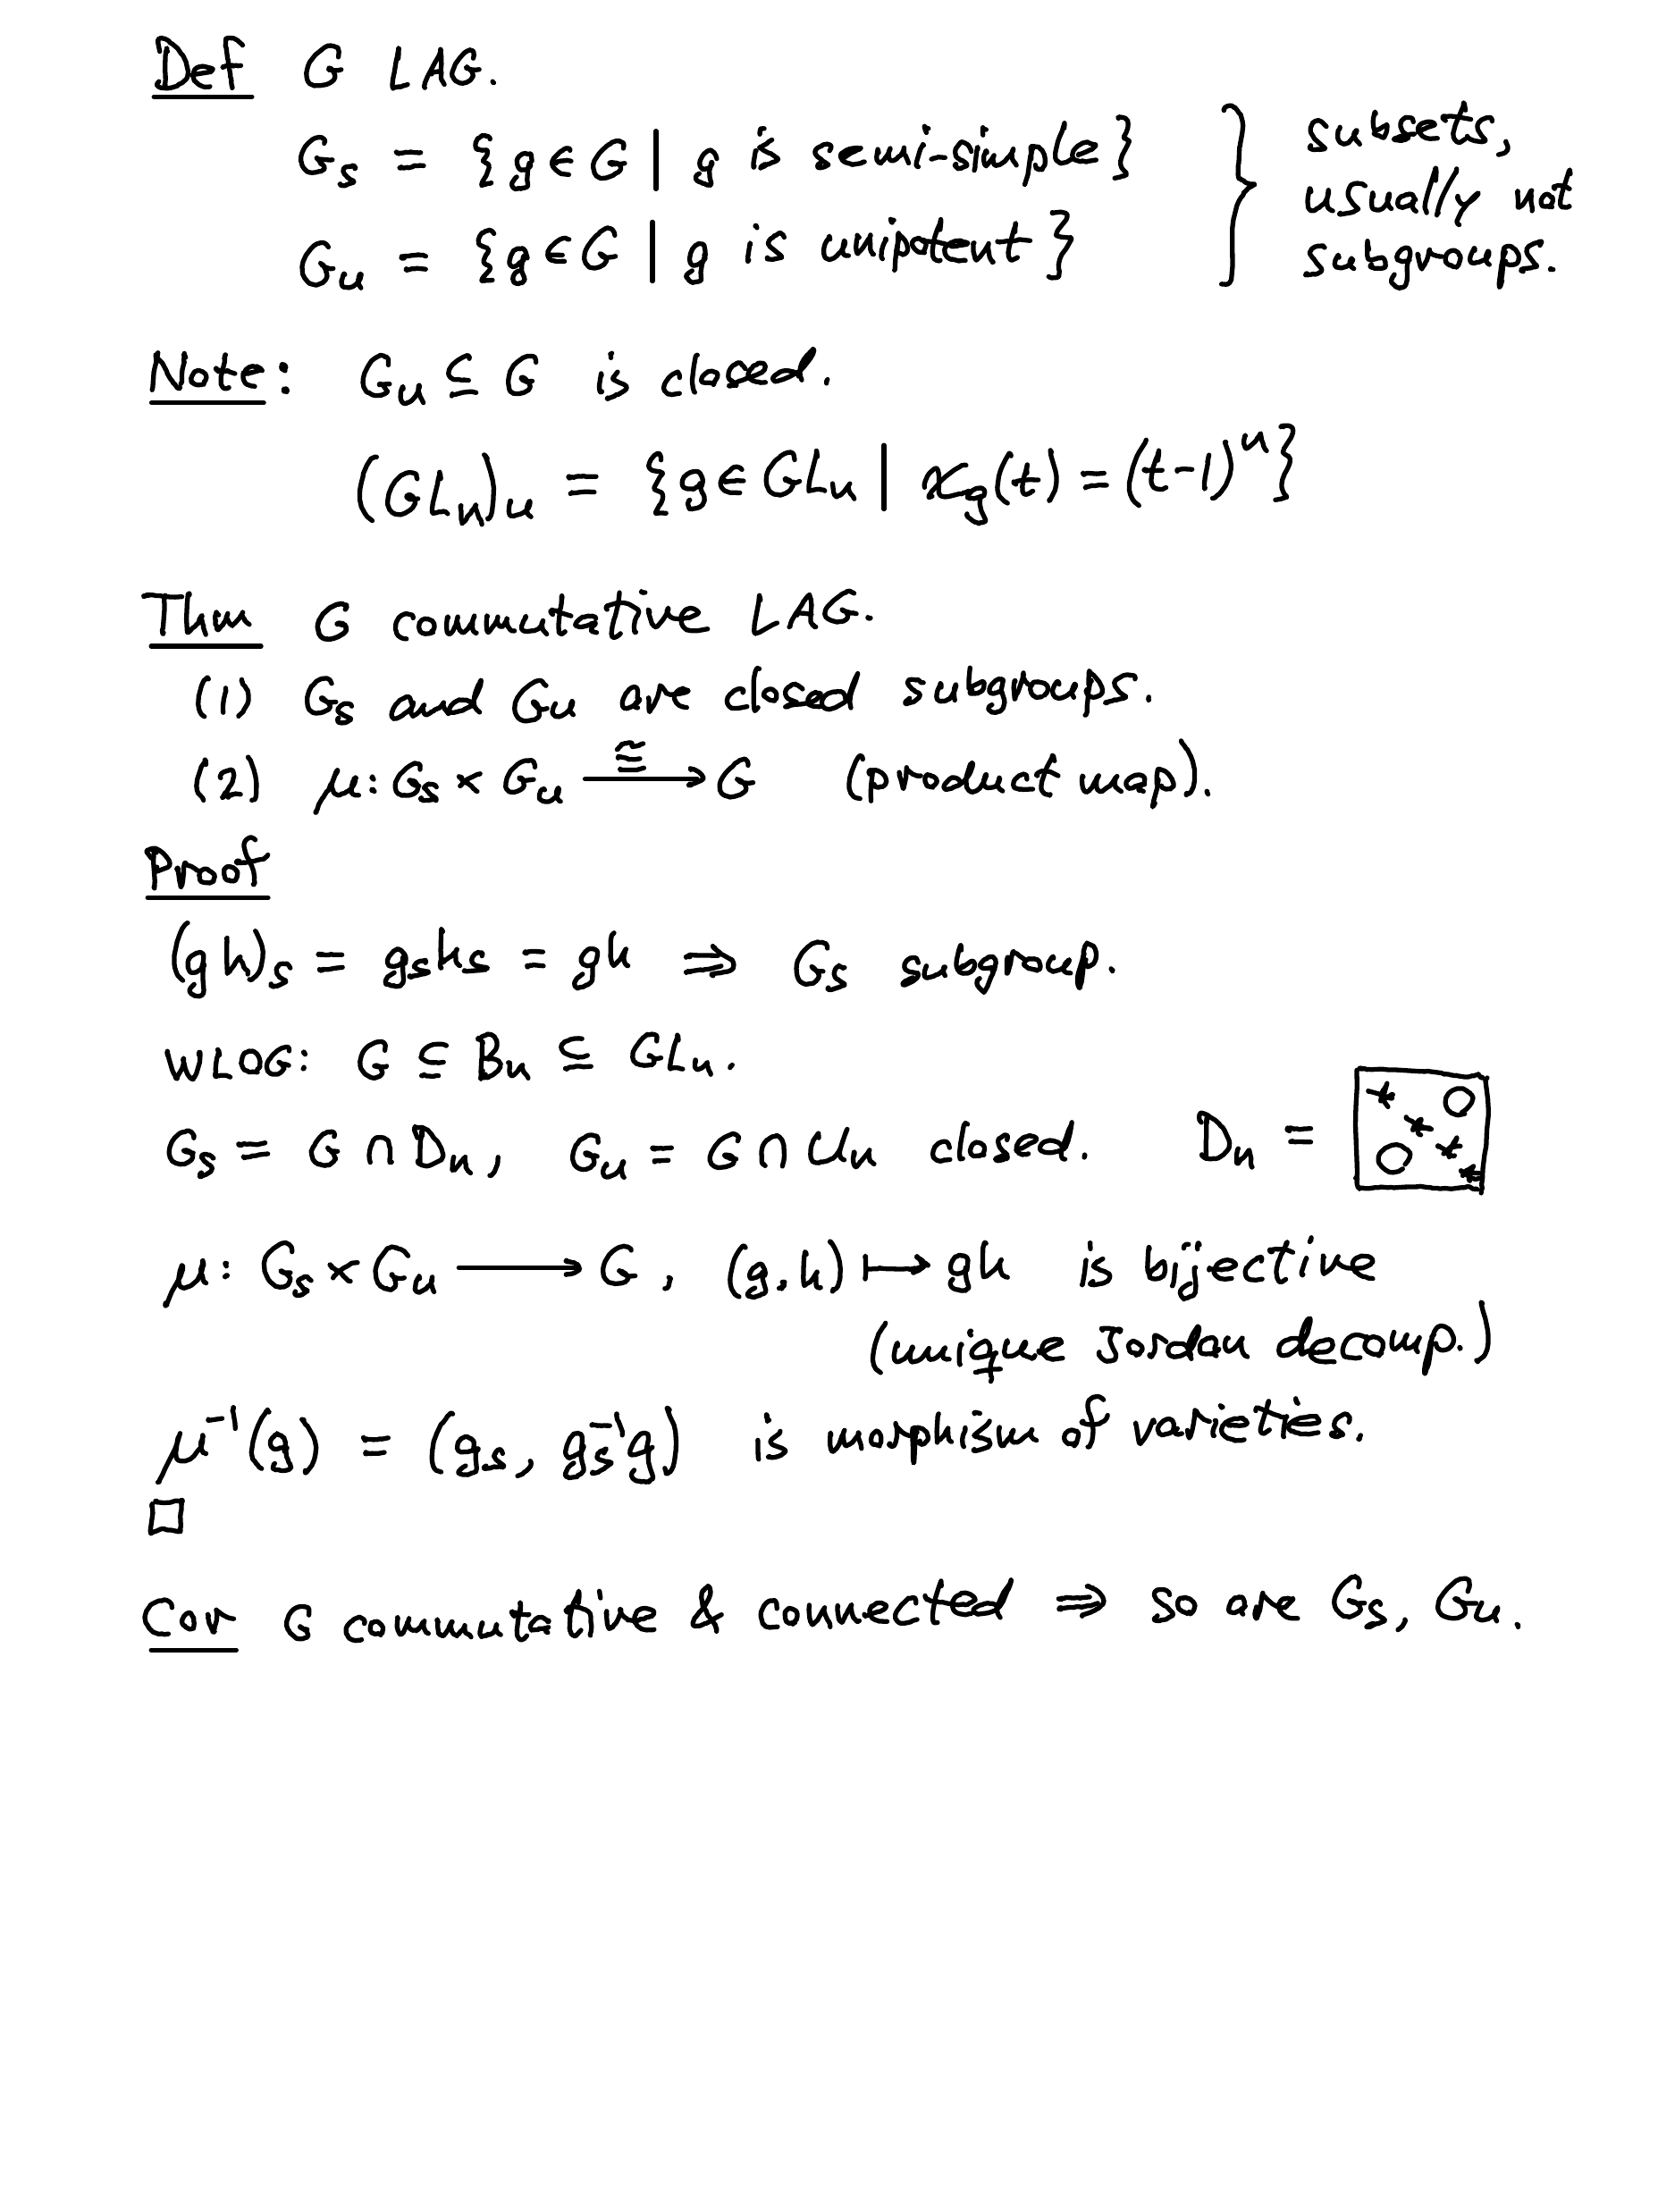 Def G LAG.
G_s = {g ∈ G | g is semi-simple}
G_u = {g ∈ G | g is unipotent}
} subsets,
usually not
subgroups.
Note: G_u ⊆ G is closed.
(GL_n)_u = {g ∈ GL_n | χ_g(t) = (t-1)^n}
Thm G commutative LAG.
(1) G_s and G_u are closed subgroups.
(2) μ: G_s × G_u ≅⟶ G (product map).
Proof
(gh)_s = g_s h_s = gh ⇒ G_s subgroup.
WLOG: G ⊆ B_n ⊆ GL_n.
G_s = G ∩ D_n, G_u = G ∩ U_n closed. D_n = [* * * * 0 0]
μ: G_s × G_u ⟶ G, (g,h) ⟼ gh is bijective
(unique Jordan decomp.)
μ^{-1}(g) = (g_s, g_s^{-1}g) is morphism of varieties.
□
Cor G commutative & connected ⇒ so are G_s, G_u.